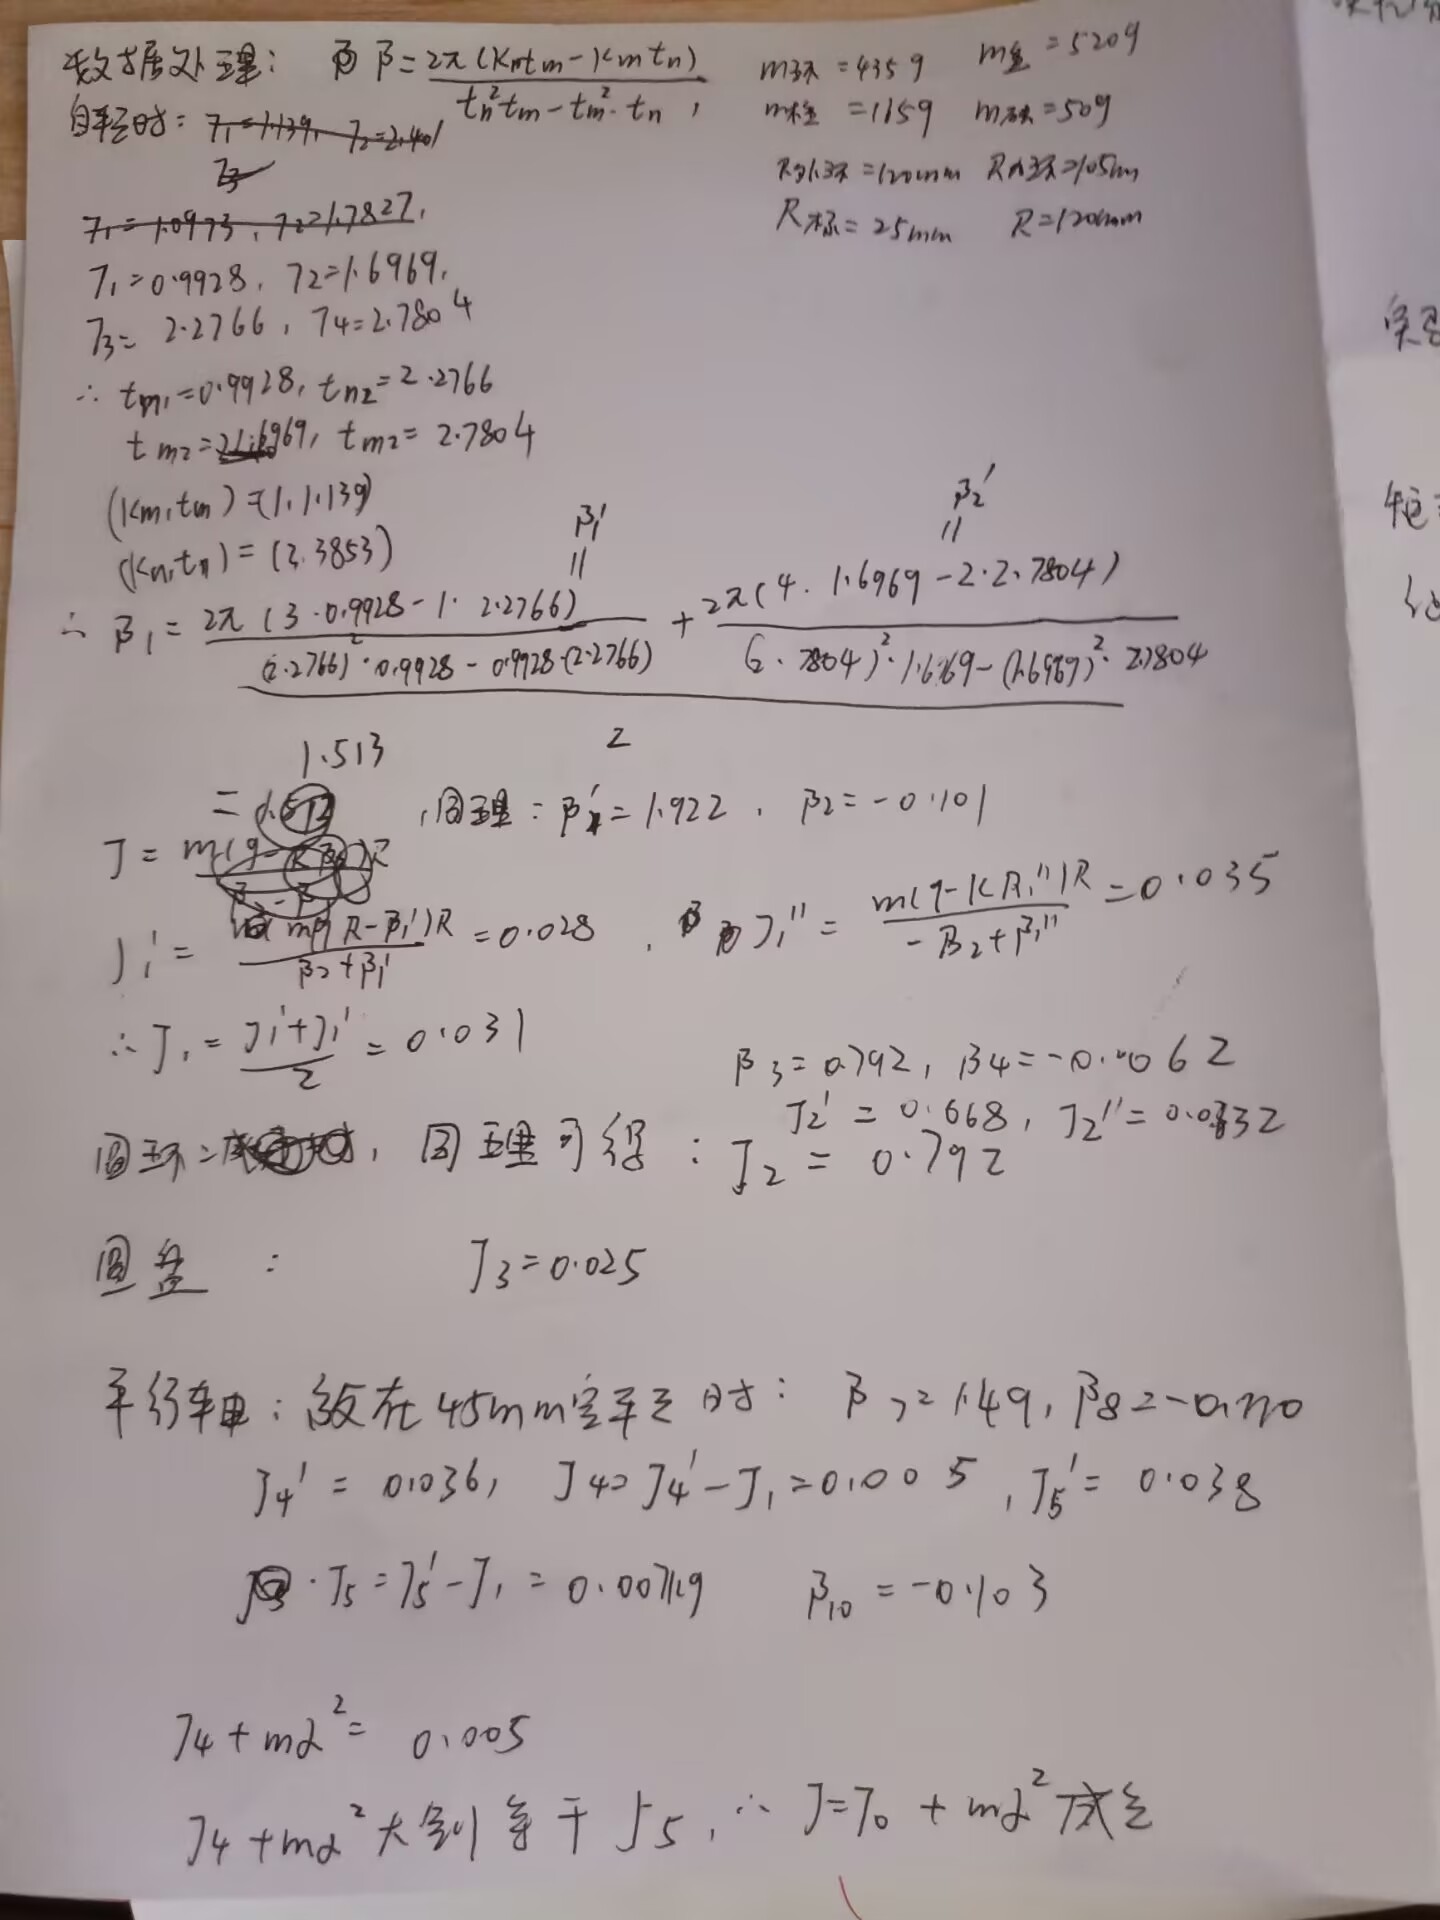 数据处理: β = 2π(Kntm-Kmtn) / (tn²tm-tm²·tn),
m环=435g m盘=520g
m柱=115g m砝=50g
R外环=120mm R内环=105mm
R塔=25mm R=120mm
T1=1.139, T2=2.401
T3
T1=1.0973, T2=1.7827,
T1=0.9928, T2=1.6969,
T3= 2.2766, T4=2.7804
∴ tm1=0.9928, tn2=2.2766
tm2= 6969, tm2= 2.7804
(Km,tm)=(1.1.139)
(Kn,tn)=(3.3853)
β1' β2'
∴ β1= [2π(3·0.9928-1·2.2766) / ((2.2766)²·0.9928-0.9928·(2.2766)) + 2π(4.1.6969-2·2.7804) / ((2.7804)²·1.6969-(1.6969)²·2.7804)] / 2
1.513
= ,同理: β1'=1.922, β2=-0.101
J =
J1'= R-β1')R / (β2+β1') =0.028, J1''= m(g-Rβ1'')R / (-β2+β1'') =0.035
∴J1= (J1'+J1') / 2 =0.031
β3=0.792, β4=-0.0062
J2'=0.668, J2''=0.0332
圆环: , 同理可得: J2=0.792
圆盘: J3=0.025
平行轴:放在45mm 时: β7=1.49, β8=-0.170
J4'=0.036, J4=J4'-J1=0.005, J5'=0.038
J5=J5'-J1=0.00719 β10=-0.103
J4+md²=0.005
J4+md²大约等于J5, ∴ J=J0+md²成立